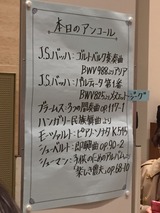 本日のアンコール
J.S.バッハ:ゴルトベルク変奏曲
BWV988よりアリア
J.S.バッハ:パルティータ第1番
BWV825より メヌエット・ジーグ
ブラームス:3つの間奏曲 op.117-1
ハンガリー民族組曲より
モーツァルト:ピアノソナタ K.545
シューベルト:即興曲 op.90-2
シューマン:子供のためのアルバムより
楽しき農夫 op.68-10